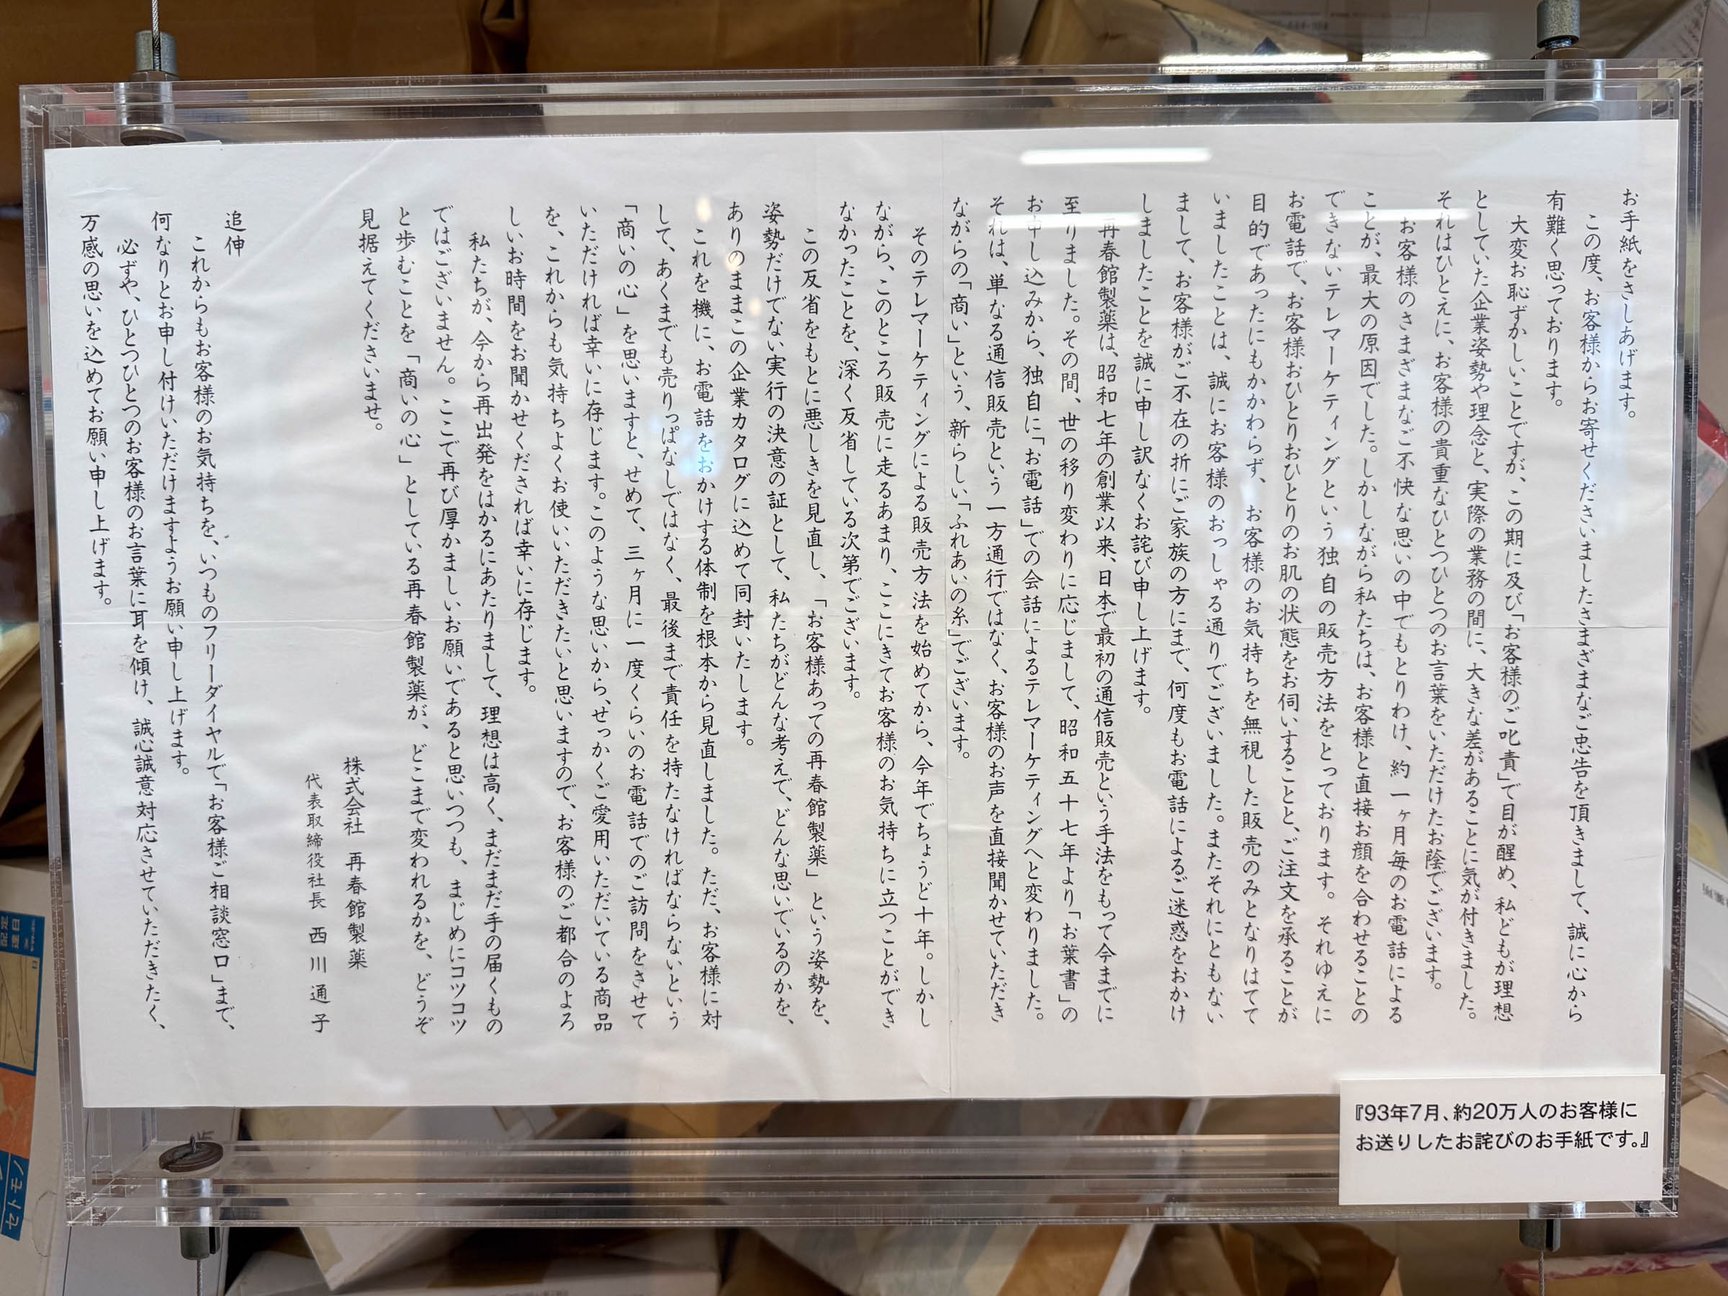 お手紙をさしあげます。
この度、お客様からお寄せくださいましたさまざまなご忠告を頂きまして、誠に心から
有難く思っております。
大変お恥ずかしいことですが、この期に及び「お客様のご叱責」で目が醒め、私どもが理想
としていた企業姿勢や理念と、実際の業務の間に、大きな差があることに気が付きました。
それはひとえに、お客様の貴重なひとつひとつのお言葉をいただけたお蔭でございます。
お客様のさまざまなご不快な思いの中でもとりわけ、約一ヶ月毎のお電話による
ことが、最大の原因でした。しかしながら私たちは、お客様と直接お顔を合わせることの
できないテレマーケティングという独自の販売方法をとっております。それゆえに
お電話で、お客様おひとりおひとりのお肌の状態をお伺いすることと、ご注文を承ることが
目的であったにもかかわらず、お客様のお気持ちを無視した販売のみとなりはてて
いましたことは、誠にお客様のおっしゃる通りでございました。またそれにともない
まして、お客様がご不在の折にご家族の方にまで、何度もお電話によるご迷惑をおかけ
しましたことを誠に申し訳なくお詫び申し上げます。
再春館製薬は、昭和七年の創業以来、日本で最初の通信販売という手法をもって今までに
至りました。その間、世の移り変わりに応じまして、昭和五十七年より「お葉書」の
お申し込みから、独自に「お電話」での会話によるテレマーケティングへと変わりました。
それは、単なる通信販売という一方通行ではなく、お客様のお声を直接聞かせていただき
ながらの「商い」という、新らしい「ふれあいの糸」でございます。
そのテレマーケティングによる販売方法を始めてから、今年でちょうど十年。しかし
ながら、このところ販売に走るあまり、ここにきてお客様のお気持ちに立つことができ
なかったことを、深く反省している次第でございます。
この反省をもとに悪しきを見直し、「お客様あっての再春館製薬」という姿勢を、
姿勢だけでない実行の決意の証として、私たちがどんな考えで、どんな思いでいるのかを、
ありのままこの企業カタログに込めて同封いたします。
これを機に、お電話をおかけする体制を根本から見直しました。ただ、お客様に対
して、あくまでも売りっぱなしではなく、最後まで責任を持たなければならないという
「商いの心」を思いますと、せめて、三ヶ月に一度くらいのお電話でのご訪問をさせて
いただければ幸いに存じます。このような思いから、せっかくご愛用いただいている商品
を、これからも気持ちよくお使いいただきたいと思いますので、お客様のご都合のよろ
しいお時間をお聞かせくだされば幸いに存じます。
私たちが、今から再出発をはかるにあたりまして、理想は高く、まだまだ手の届くもの
ではございません。ここで再び厚かましいお願いであると思いつつも、まじめにコツコツ
と歩むことを「商いの心」としている再春館製薬が、どこまで変われるかを、どうぞ
見据えてくださいませ。
株式会社 再春館製薬
代表取締役社長 西川通子
追伸
これからもお客様のお気持ちを、いつものフリーダイヤルで「お客様ご相談窓口」まで、
何なりとお申し付けいただけますようお願い申し上げます。
必ずや、ひとつひとつのお客様のお言葉に耳を傾け、誠心誠意対応させていただきたく、
万感の思いを込めてお願い申し上げます。
『93年7月、約20万人のお客様に
お送りしたお詫びのお手紙です。』